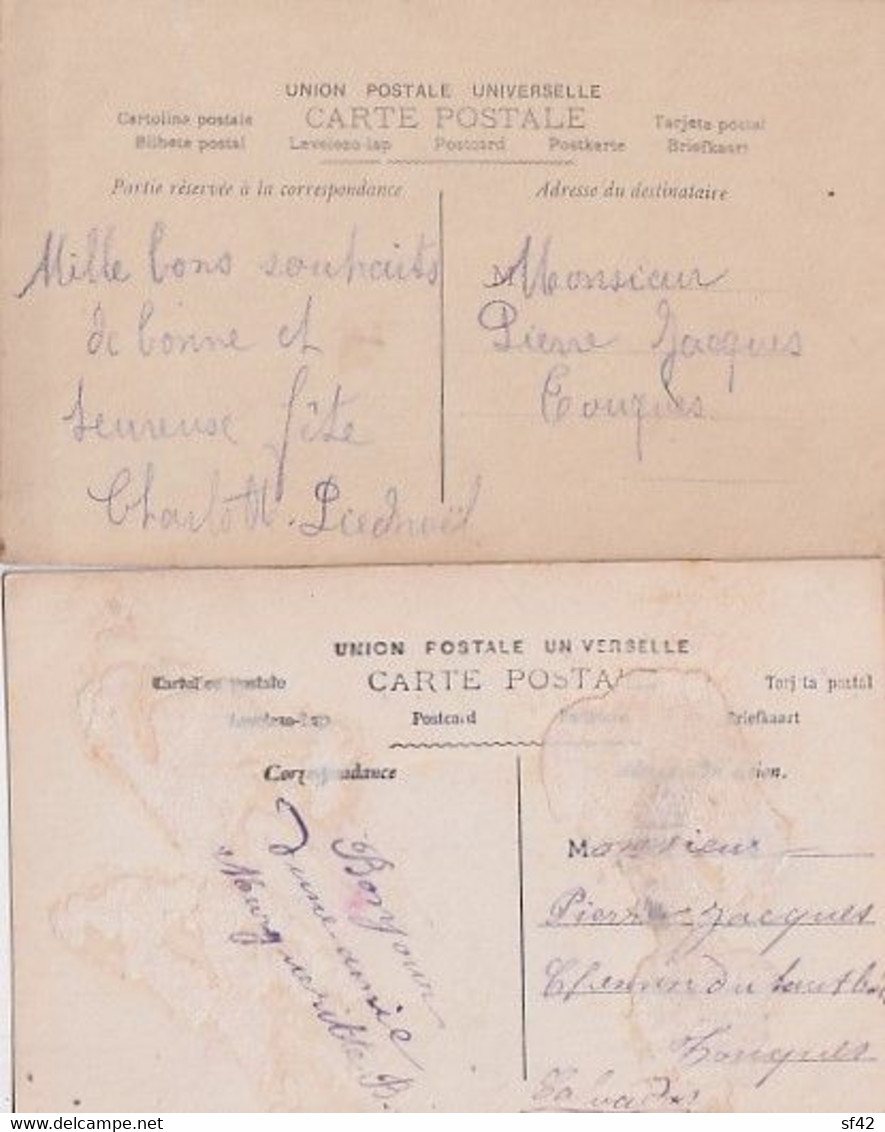 UNION POSTALE UNIVERSELLE
CARTE POSTALE
Cartolina postale Tarjeta postal
Bilhete postal Levelezo-lap Postcard Postkarte Briefkaart
Partie réservée à la correspondance
Adresse du destinataire
Mille bons souhaits
de bonne et
heureuse fête
Charlotte Piednoël
M Monsieur
Pierre Jacques
Touques
UNION POSTALE UN VERSELLE
CARTE POSTA
postale Tarj ta postal
Levelezo-Lap Postcard Briefkaart
Correspondance
Bonjour
d'une amie
Marguerite B.
Monsieur
Pierre Jacques
Chemin du haut
Touques
Calvados
delcampe.net
sf42